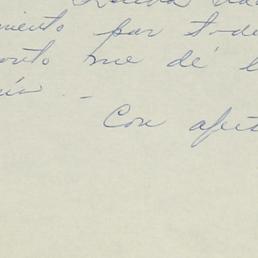 miento por tode
onto me dé l
ía. -
Con afect